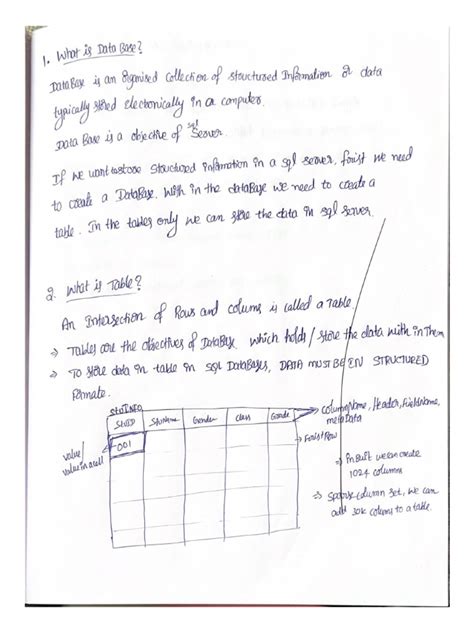 1. What is Data Base?
DataBase is an Organised Collection of Structured Information or data
typically stored electronically in a computer.
Data Base is a objective of sql Server.
If we want to store Structured information in a sql server, forist we need
to create a DataBase. With in the dataBase we need to create a
table. In the tables only we can store the data in sql server.
2. What is Table?
An Intersection of Rows and colums is called a Table.
→ Tables are the objectives of DataBase which holds / store the data with in Them
→ To store data in table in SQL DataBases, DATA MUST BE IN STRUCTURED
Formate.
StuINFO
StuID StuName Gender Class Grade
→ columnName, Header, FieldName,
metaData
001
→ Forist Row
value/
value in a cell
→ In built we can create
1024 columns
→ Sparse column set, we can
add 30K colums to a table.